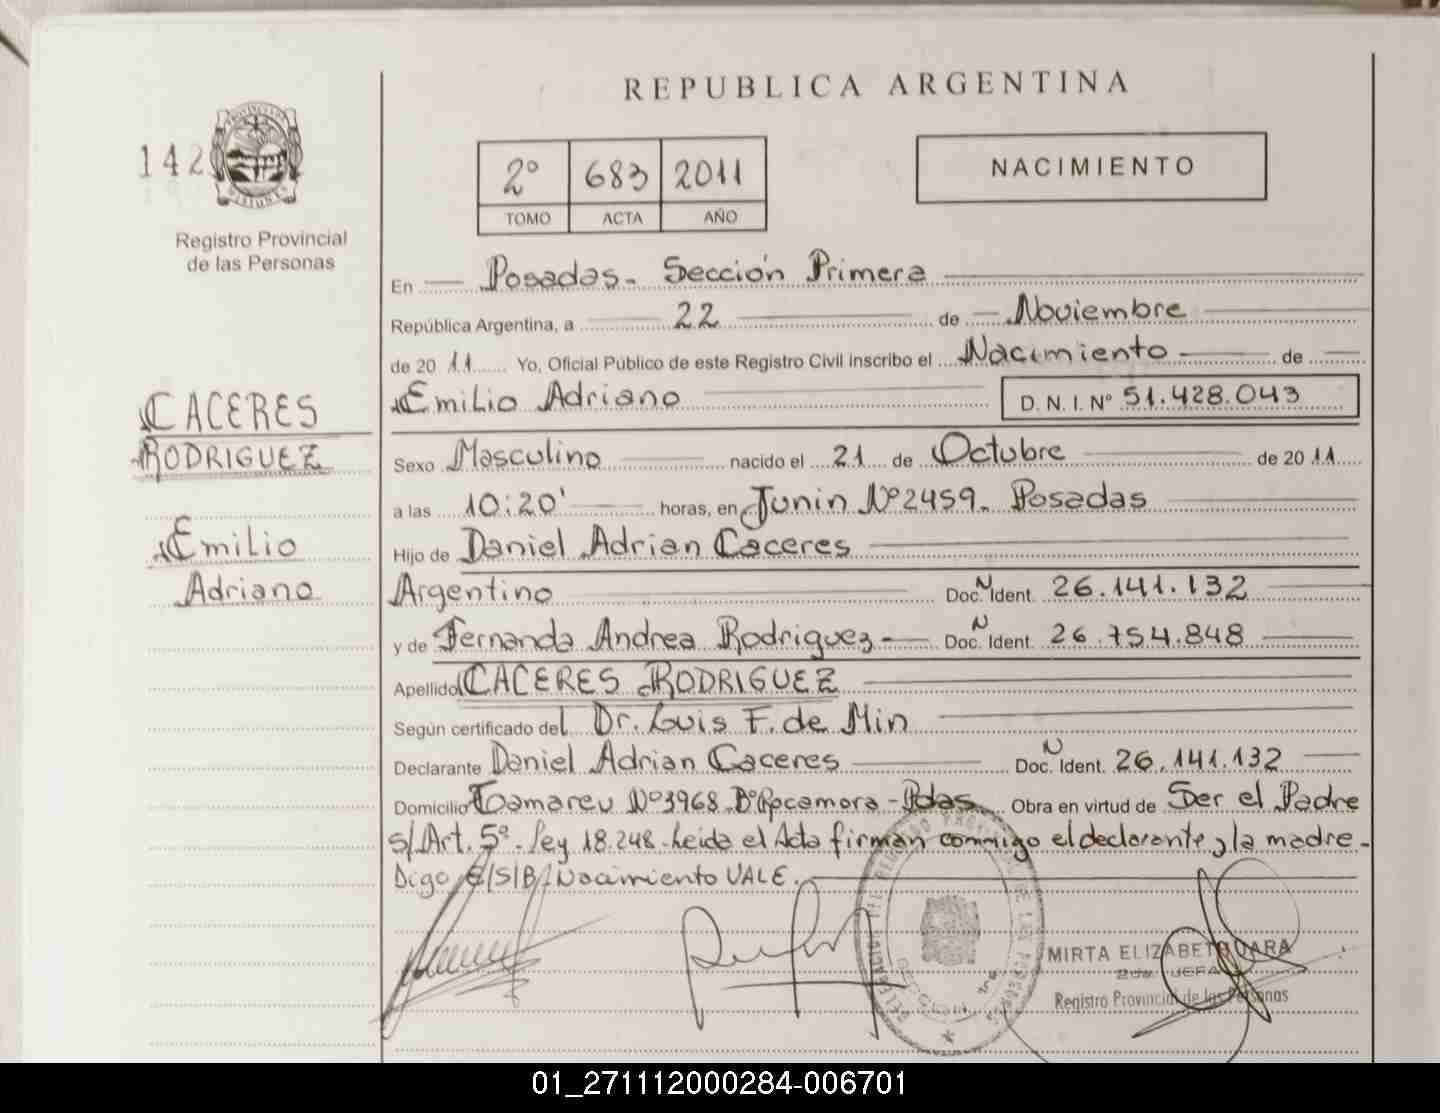 REPUBLICA ARGENTINA
142
Registro Provincial
de las Personas
2º 683 2011
TOMO ACTA AÑO
NACIMIENTO
En Posadas - Sección Primera
República Argentina, a 22 de Noviembre
de 2011 Yo, Oficial Público de este Registro Civil inscribo el Nacimiento de
Emilio Adriano D.N.I.Nº 51.428.043
CACERES
RODRIGUEZ
Emilio
Adriano
Sexo Masculino nacido el 21 de Octubre de 2011
a las 10:20' horas, en Junin Nº 2459. Posadas
Hijo de Daniel Adrian Caceres
Argentino Doc. N Ident. 26.141.132
y de Fernanda Andrea Rodriguez - Doc. N Ident. 26.754.848
Apellido CACERES RODRIGUEZ
Según certificado del Dr. Luis F. de Min
Declarante Daniel Adrian Caceres Doc. N Ident. 26.141.132
Domicilio Tamareu Nº 3968 Bº Rocamora - Pdas Obra en virtud de Ser el Padre
s/Art. 5º Ley 18.248 - Leida el Acta firman conmigo el declarante y la madre -
Digo E/S/B/Nacimiento VALE.
MIRTA ELIZABETH JARA
2da. JEFA
Registro Provincial de las Personas
01_271112000284-006701